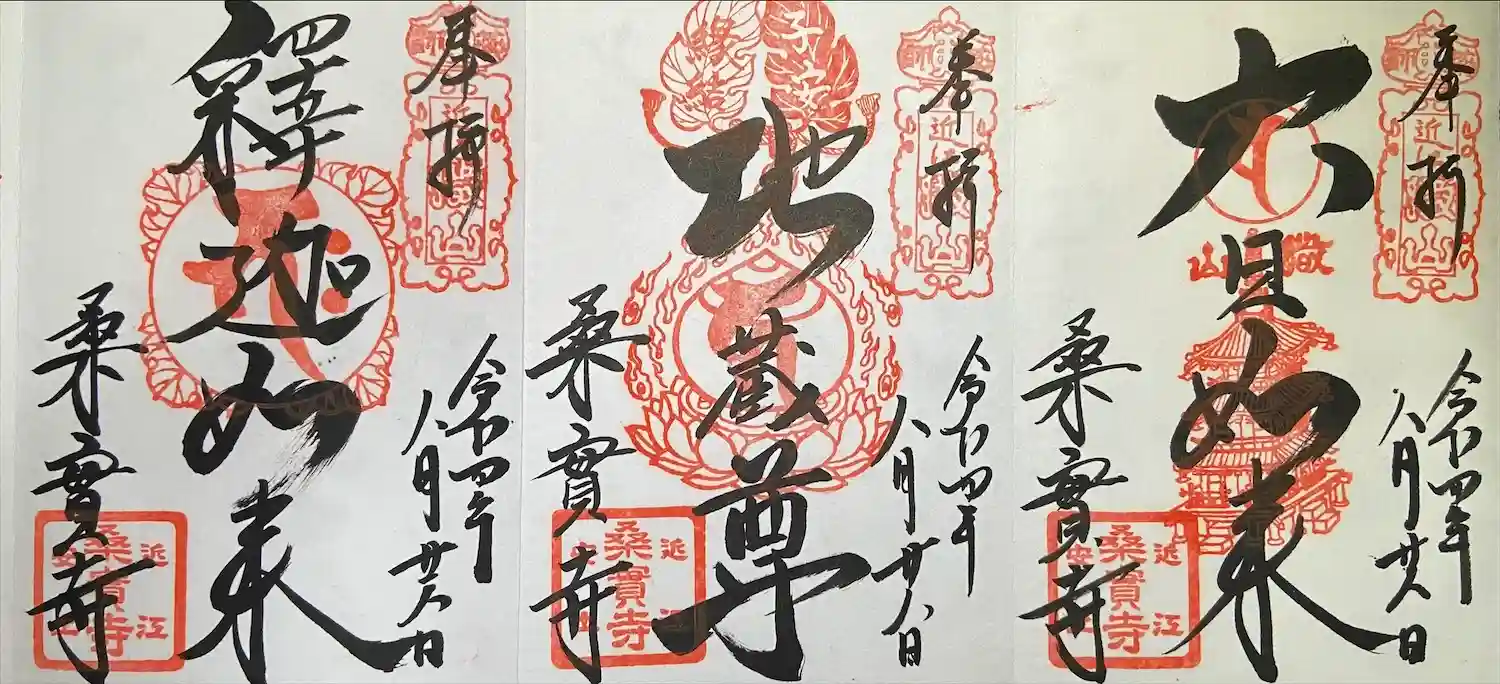 奉拝
大日如来
令和四年
八月廿八日
桑實寺
近江
桑實寺
安土
奉拝
子安
縁結
地蔵尊
令和四年
八月廿八日
桑實寺
近江
桑實寺
安土
奉拝
釋迦如来
令和四年
八月廿八日
桑實寺
近江
桑實寺
安土